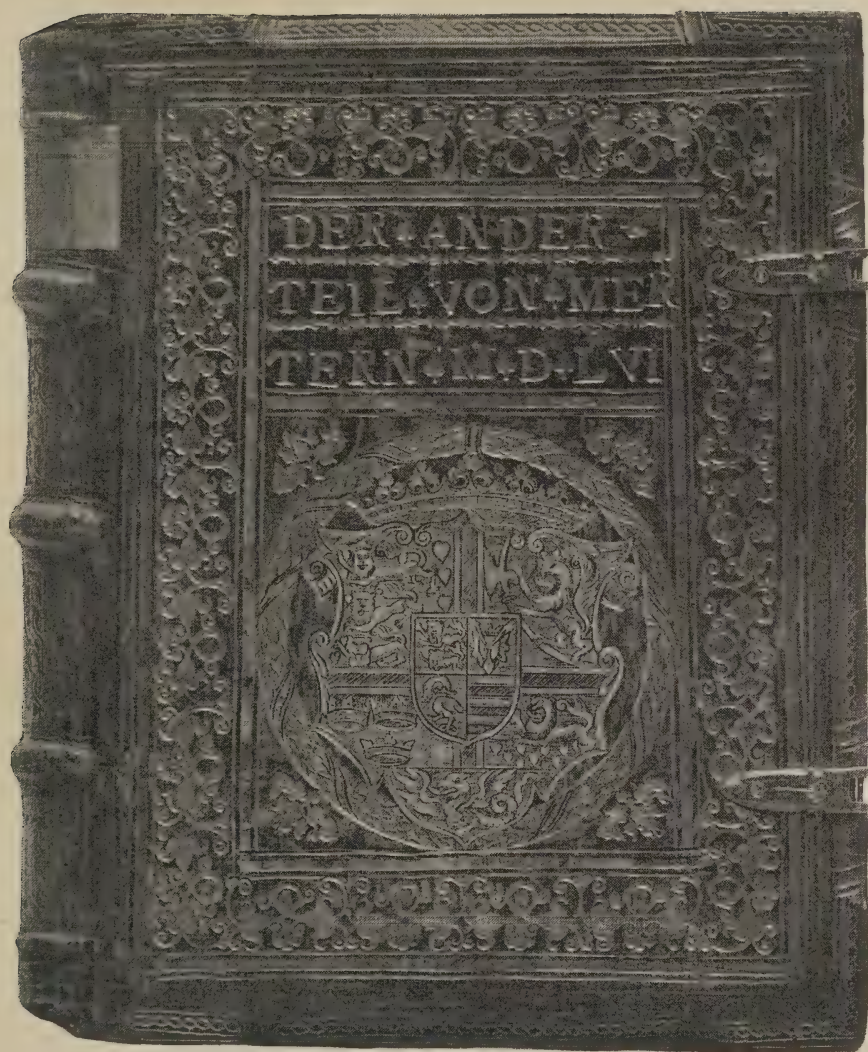 DER ANDER
TEIL VON MER
TERN M D LVI